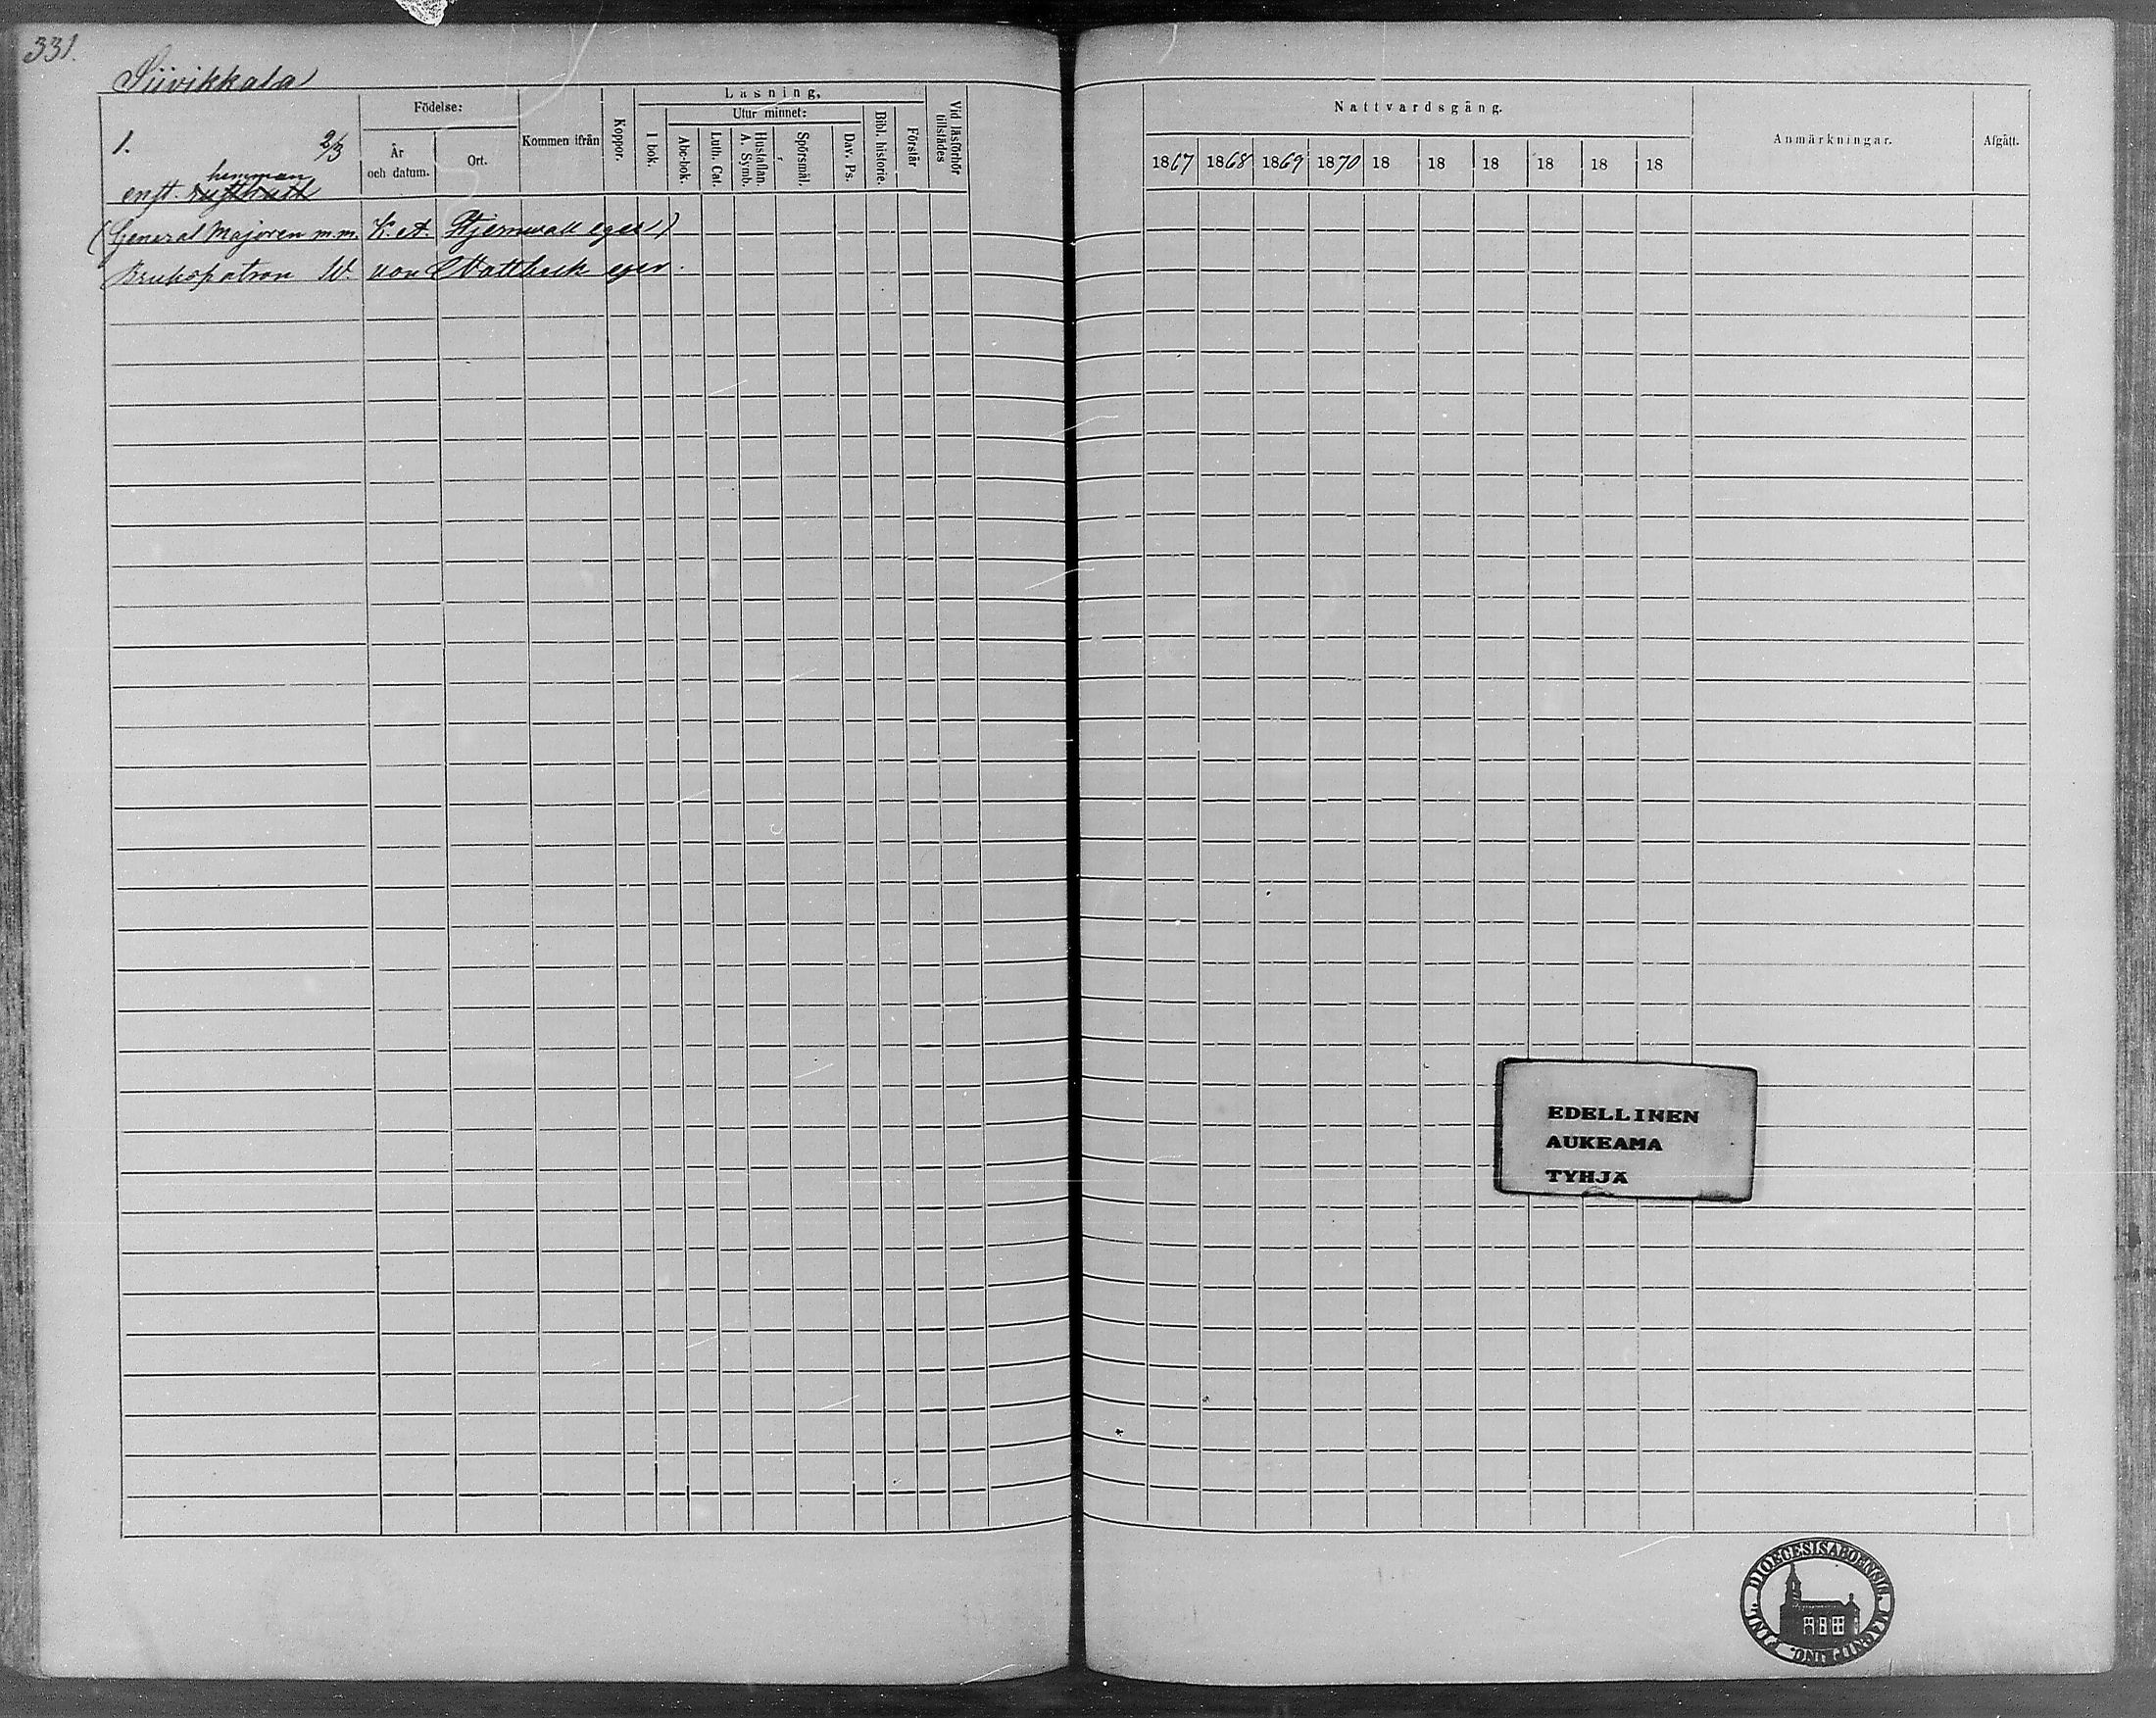 331.
Siivikkala
1. 2/3
hemman
enst.
(General Majoren m.m. K. A. Stjernwall eger)
Brukspatron W. von Nottbeck eger.
Födelse:
År och datum.
Ort.
Kommen ifrån
Koppor.
Läsning.
I bok.
Utur minnet:
Abc-bok.
Luth. Cat.
Hustaflan.
A. Symb.
Spörsmål.
Dav. Ps.
Bibl. historie.
Förstår
Vid läsförhör tillstädes
Nattvardsgång.
1867 1868 1869 1870 18 18 18 18 18 18
Anmärkningar.
Afgått.
EDELLINEN
AUKEAMA
TYHJÄ
DIOECESIS ABOENSIS
FINL.